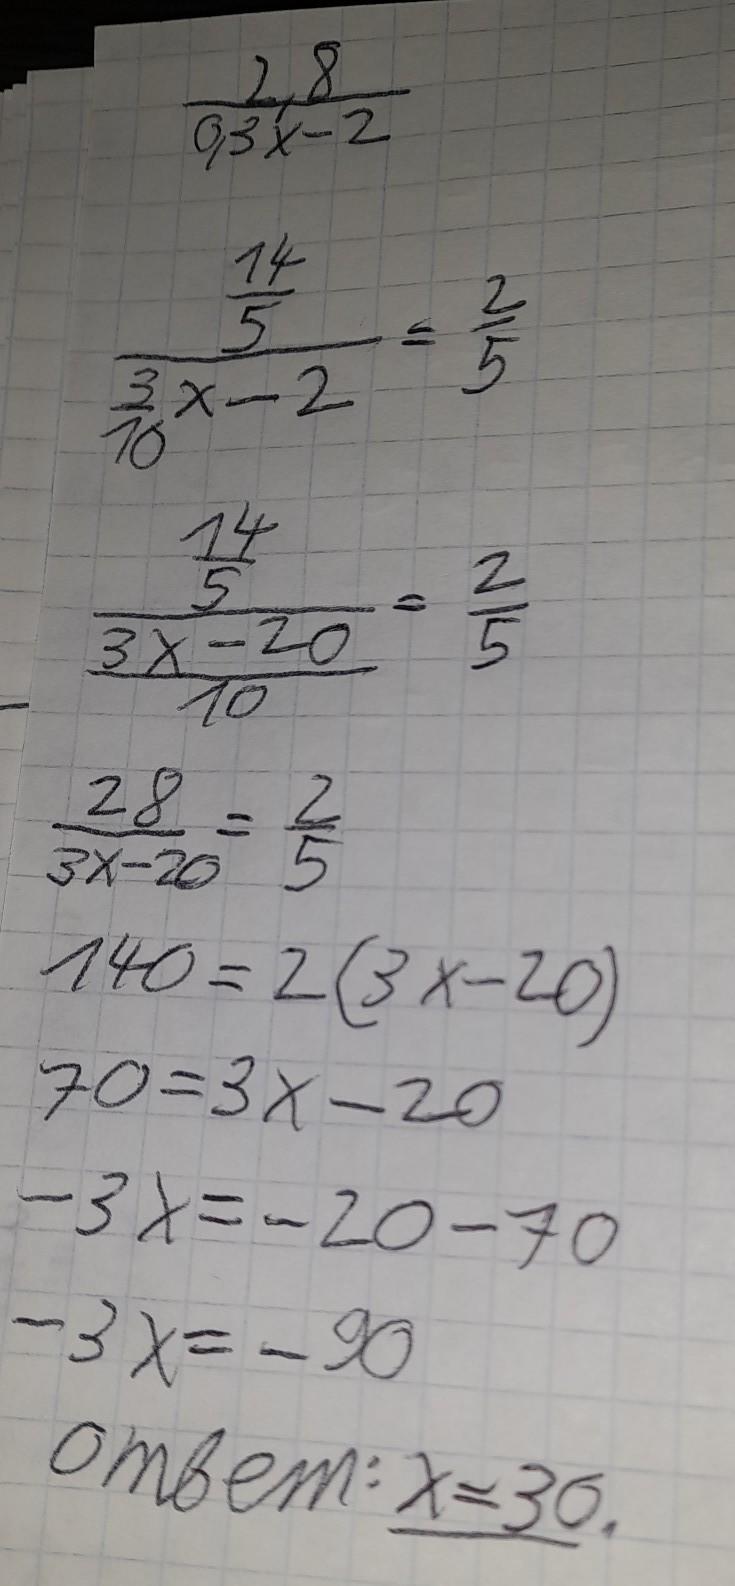 2,8
0,3x-2
14
5
3
10
x-2
=
2
5
14
5
3x-20
10
=
2
5
28
3x-20
=
2
5
140=2(3x-20)
70=3x-20
-3x=-20-70
-3x=-90
ответ: x=30.